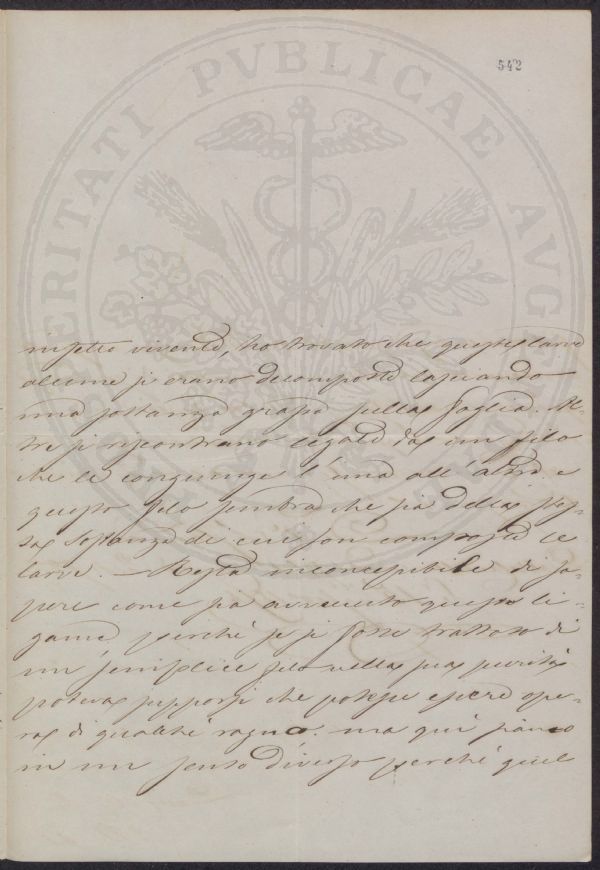 542
PROSPERITATI PVBLICAE AVGENDAE
insetto vivente, ho trovato che queste larve
alcune si erano decomposte lasciando
una sostanza grassa sulla foglia. Al-
tre si riscontrano legate da un filo
che le congiunge l'una all'altra e
questo filo sembra che sia della stes-
sa sostanza di cui son composte le
larve. — Resta inconcepibile di sa-
pere come sia avvenuto questo le-
game perchè se si fosse trattato di
un semplice filo nella sua purità
poteva supporsi che potesse essere ope-
ra di qualche ragno. ma qui siamo
in un senso diverso perchè quel